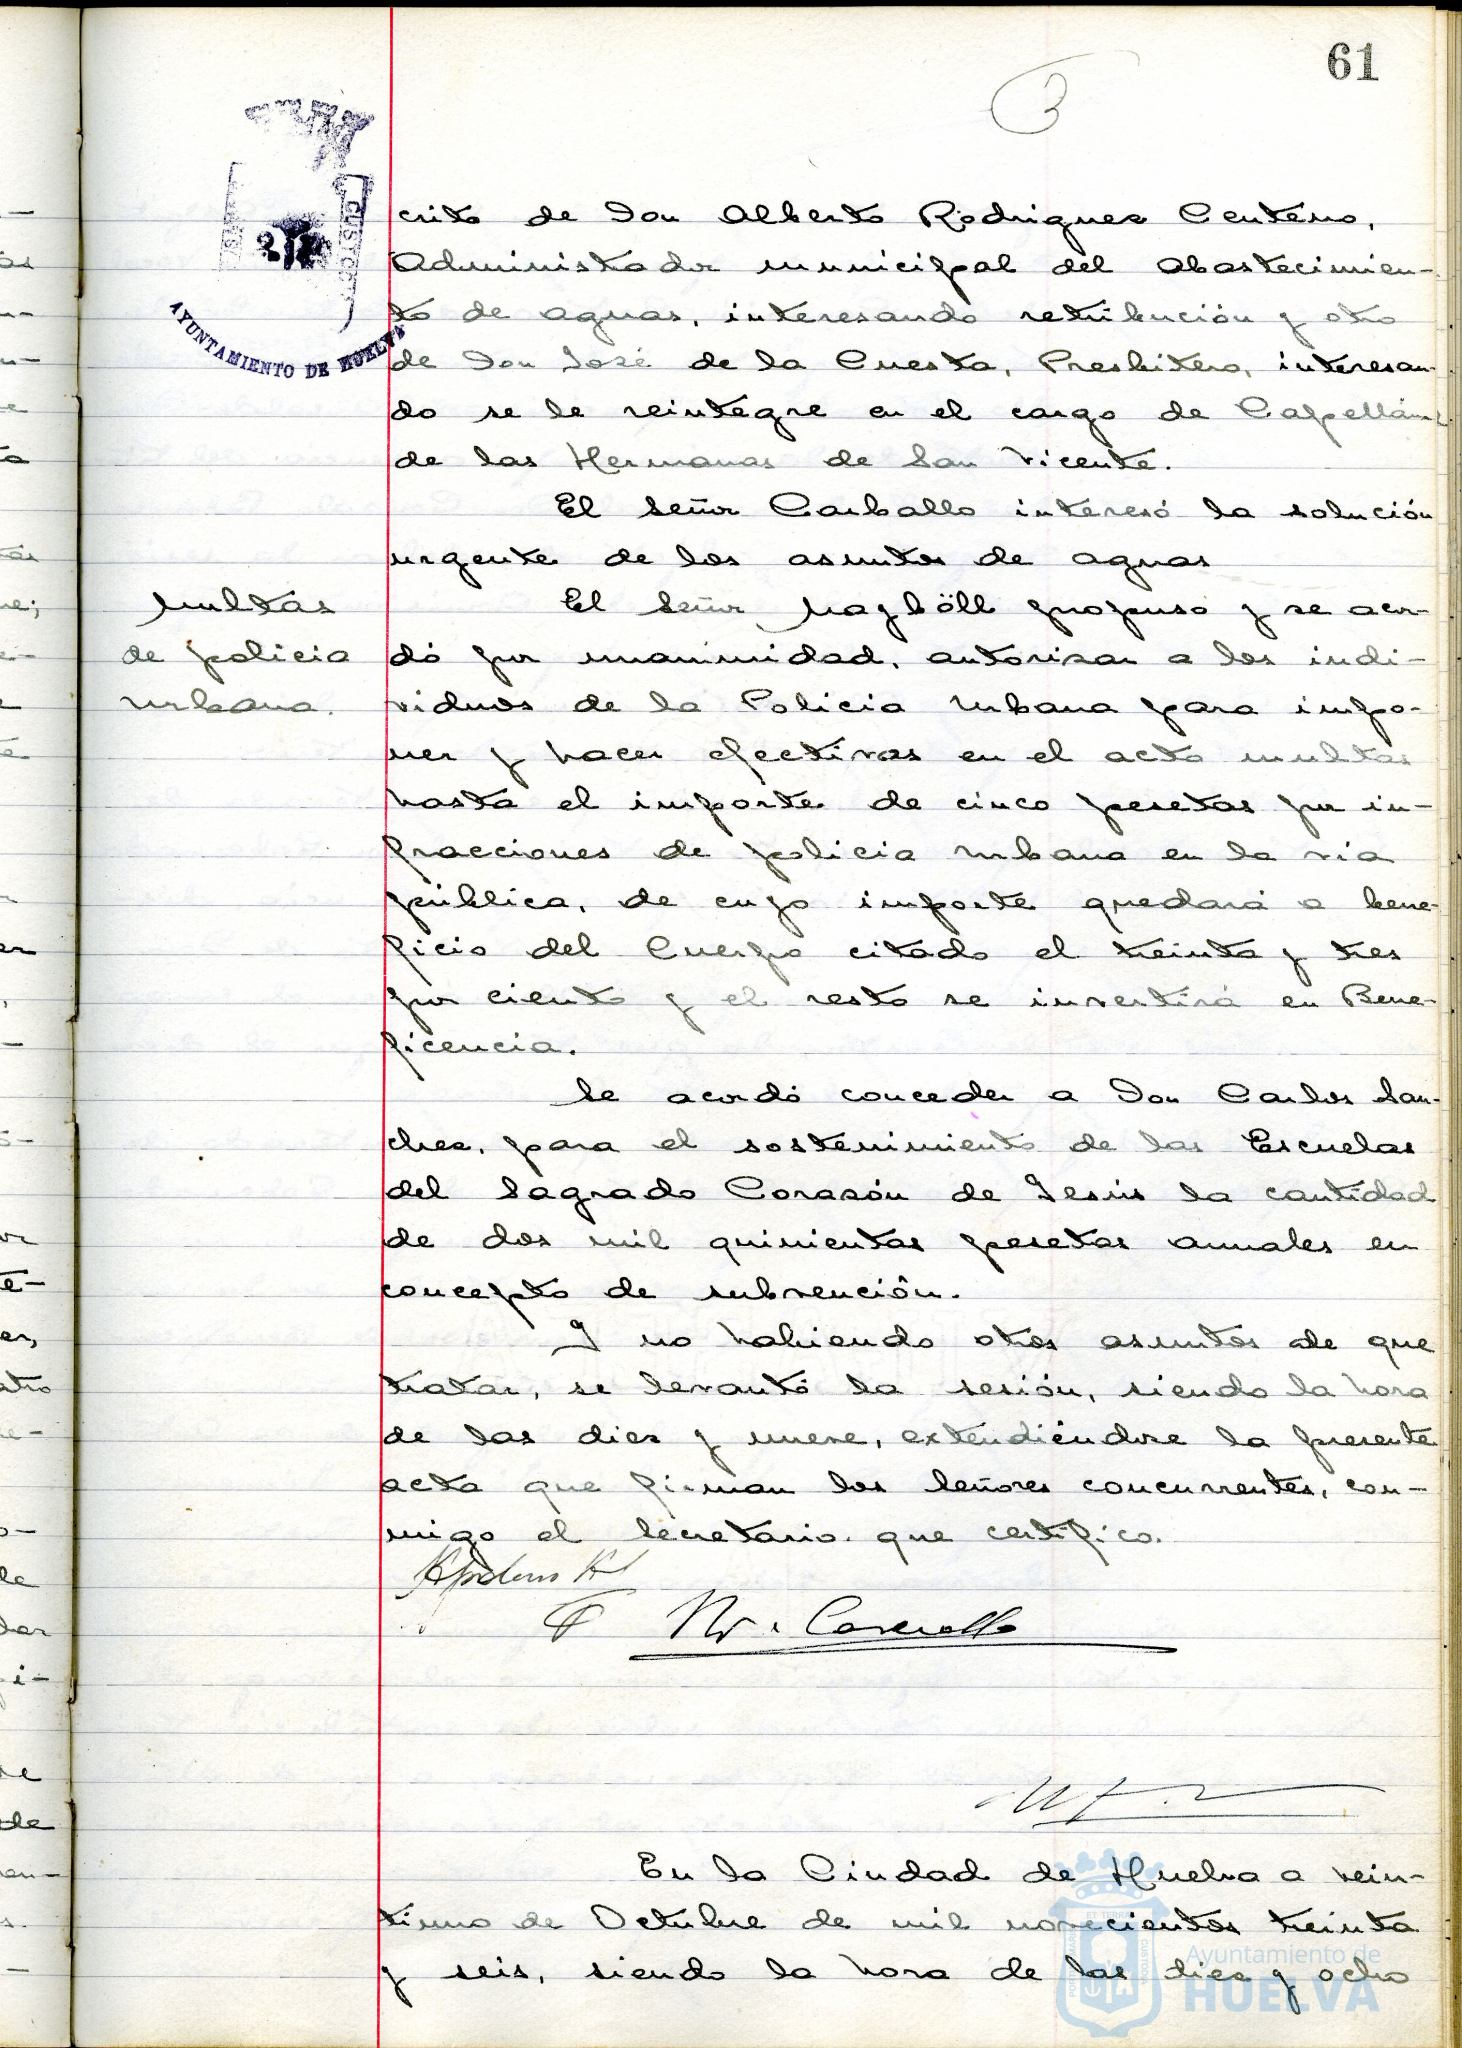 61
3
AYUNTAMIENTO DE HUELVA
crito de Don Alberto Rodriguez Centeno,
Administrador municipal del Abastecimien-
to de aguas, interesando retribución y otro
de Don José de la Cuesta, Presbitero, interesan-
do se le reintegre en el cargo de Capellán
de las Hermanas de San Vicente.
El Señor Carballo interesó la solución
urgente de los asuntos de aguas
Multas
de policia
urbana.
El Señor Magböll propuso y se acor-
dó por unanimidad, autorizar a los indi-
viduos de la Policia Urbana para impo-
ner y hacer efectivas en el acto multas
hasta el importe de cinco pesetas por in-
fracciones de policia urbana en la via
pública, de cuyo importe quedará a bene-
ficio del Cuerpo citado el treinta y tres
por ciento y el resto se invertirá en Bene-
ficencia.
Se acordó conceder a Don Carlos San-
chez, para el sostenimiento de las Escuelas
del Sagrado Corazón de Jesús la cantidad
de dos mil quinientas pesetas anuales en
concepto de subvención.
Y no habiendo otros asuntos de que
tratar, se levantó la sesión, siendo la hora
de las diez y nueve, extendiéndose la presente
acta que firman los Señores concurrentes, con-
migo el Secretario que certifico.
En la Ciudad de Huelva a vein-
tiuno de Octubre de mil novecientos treinta
y seis, siendo la hora de las diez y ocho
Ayuntamiento de
HUELVA